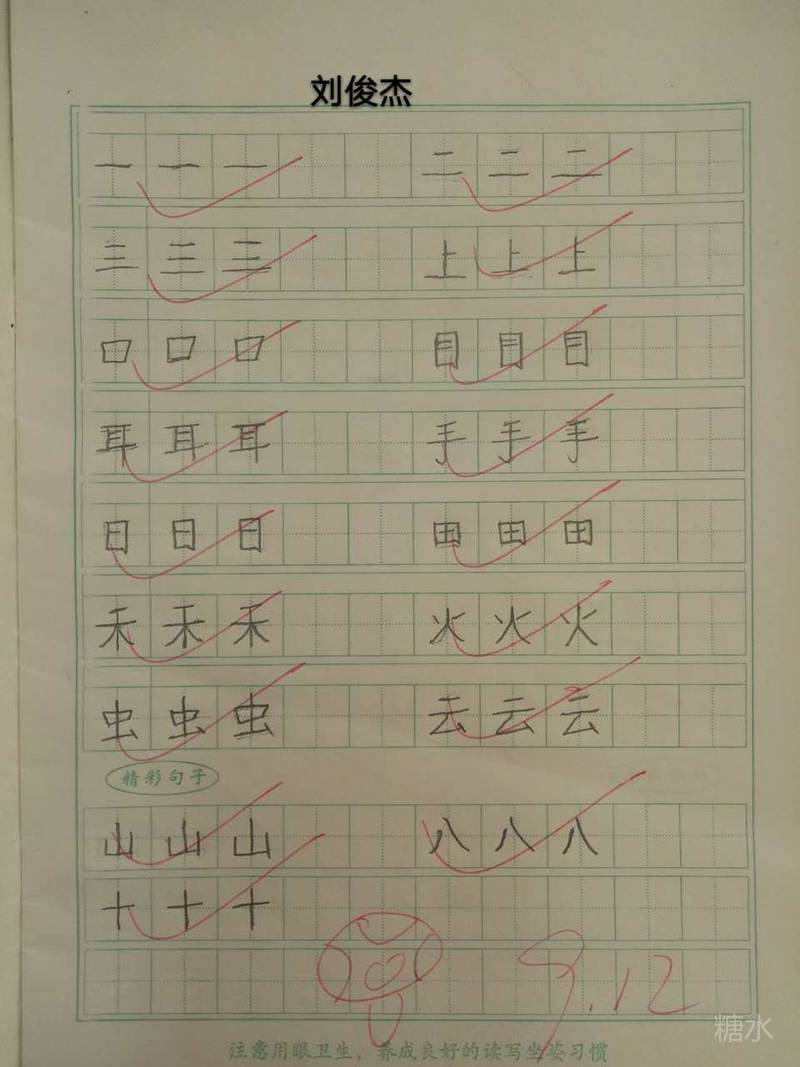 刘俊杰
一 一 一 二 二 二
三 三 三 上 上 上
口 口 口 目 目 目
耳 耳 耳 手 手 手
日 日 日 田 田 田
禾 禾 禾 火 火 火
虫 虫 虫 云 云 云
精彩句子
山 山 山 八 八 八
十 十 十
9.12
注意用眼卫生，养成良好的读写坐姿习惯
糖水